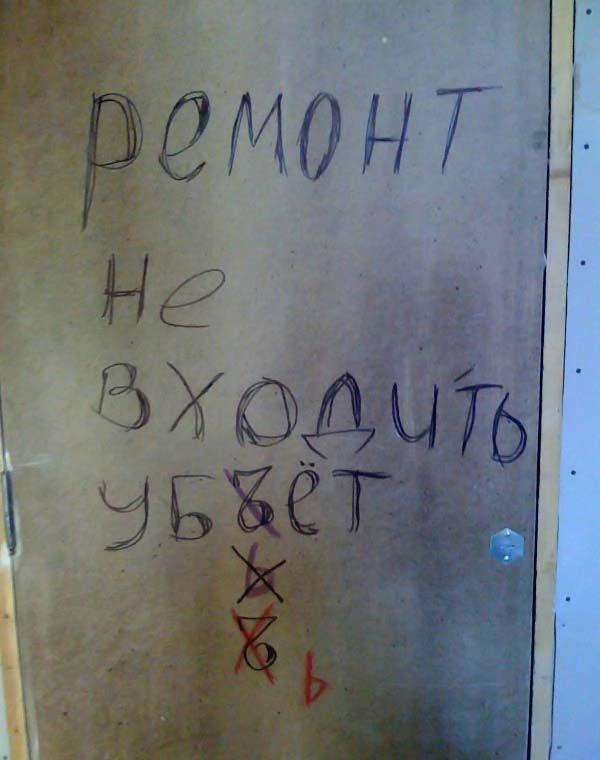 ремонт
не
входить
убъёт
ь
ъ
ь